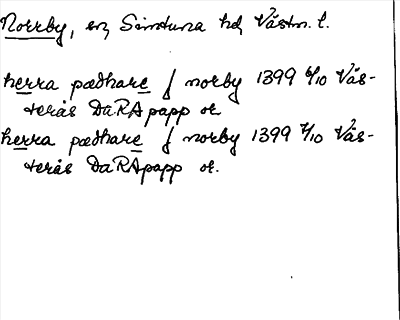 Norrby, en, Simtuna hd, Västm. l.
herra pædhare j norby 1399 6/10 Väs-
terås DaRApapp or.
herra pædhare j norby 1399 7/10 Väs-
terås DaRApapp or.